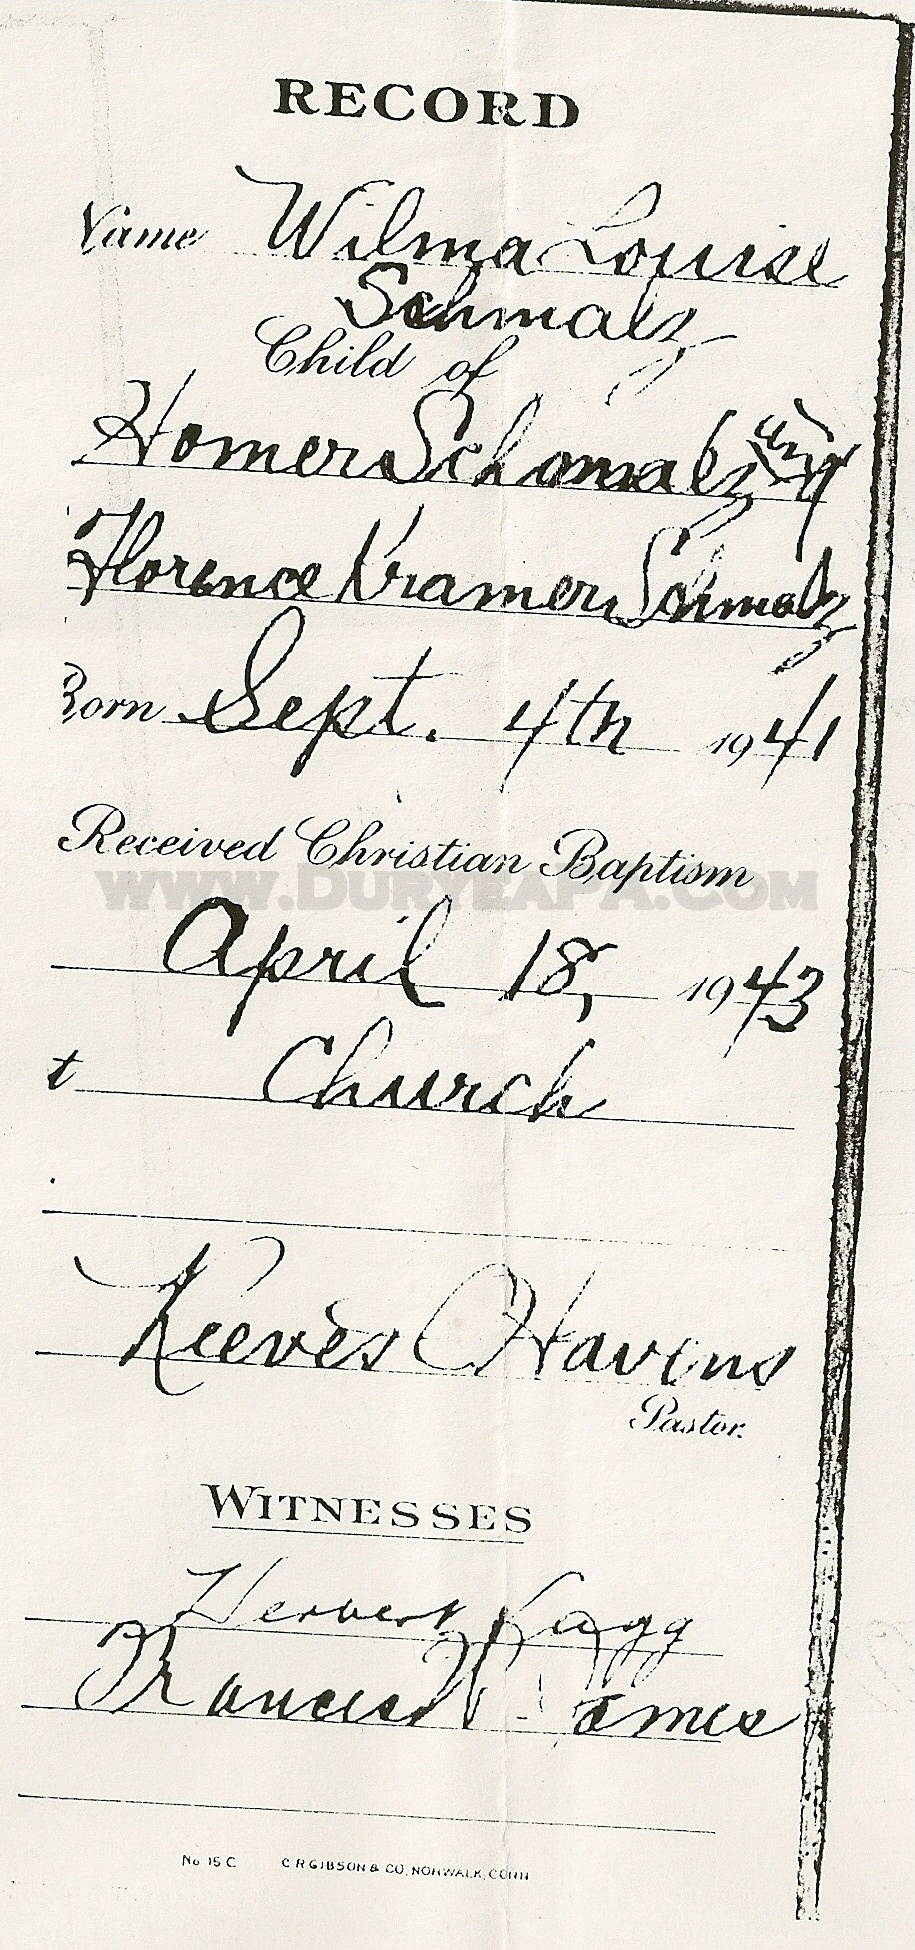 RECORD
Name Wilma Louise
Schmalz
Child of
Homer Schmalz
Florence Kramer Schmalz
Born Sept. 4th 1941
Received Christian Baptism
WWW.DURYEAPA.COM
April 18, 1943
t Church
Reeves Havens
Pastor.
WITNESSES
Herbert Kagg
Frances James
No 15 C C R GIBSON & CO, NORWALK, CONN